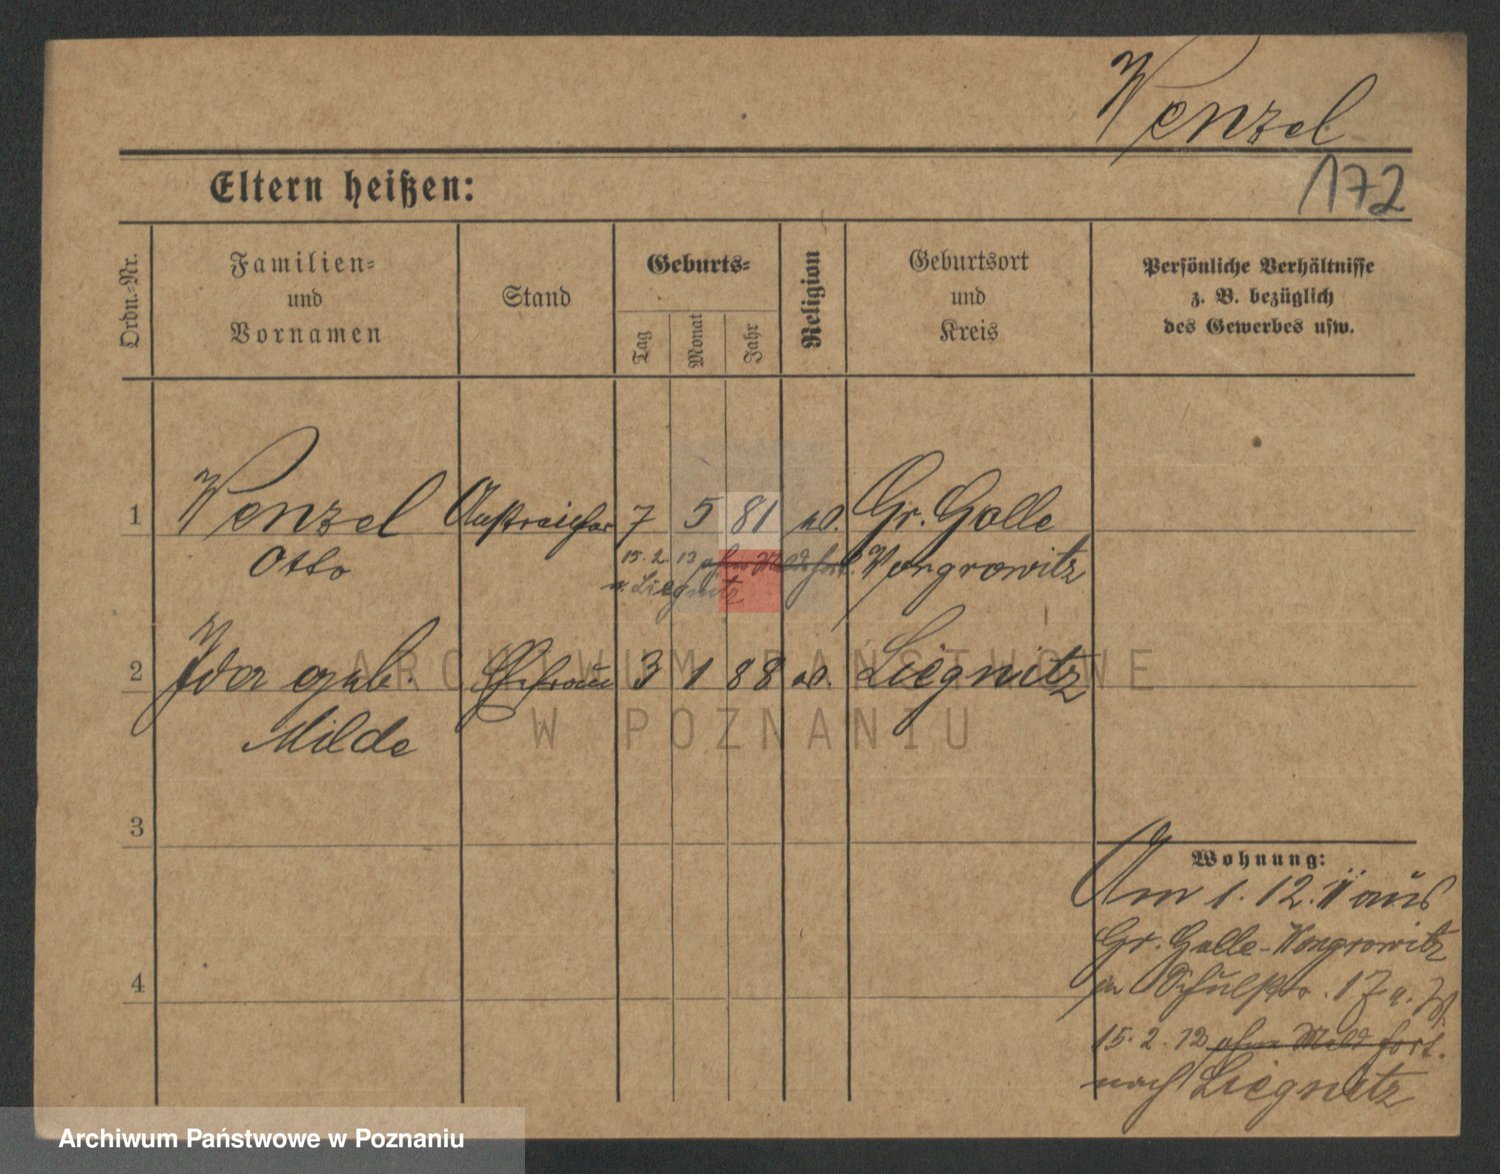 Wenzel
172
Eltern heißen:
Ordn.-Nr.
Familien-
und
Vornamen
Stand
Geburts-
Tag
Monat
Jahr
Religion
Geburtsort
und
Kreis
Persönliche Verhältnisse
z. B. bezüglich
des Gewerbes usw.
1 Wenzel 7 5 81 Gr. Golle
Otto 15. 2. 13 ohne Meld fort. Wongrowitz
n. Liegnitz
2 Ida geb. Ehefrau 3 1 88 Liegnitz
Milde
ARCHIWUM PAŃSTWOWE
W POZNANIU
3
Wohnung:
Am 1. 12. 11 aus
Gr. Golle-Wongrowitz
4
Schulstr. 17
15. 2. 13 ohne Meld fort.
nach Liegnitz
Archiwum Państwowe w Poznaniu